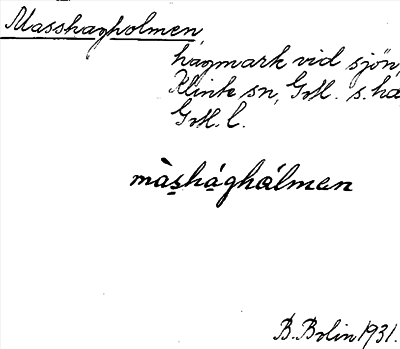 Masshagholmen,
hagmark vid sjön,
Klinte sn, Gotl. s. hä
Gotl. l.
màshághálmen
B. Bolin 1931.